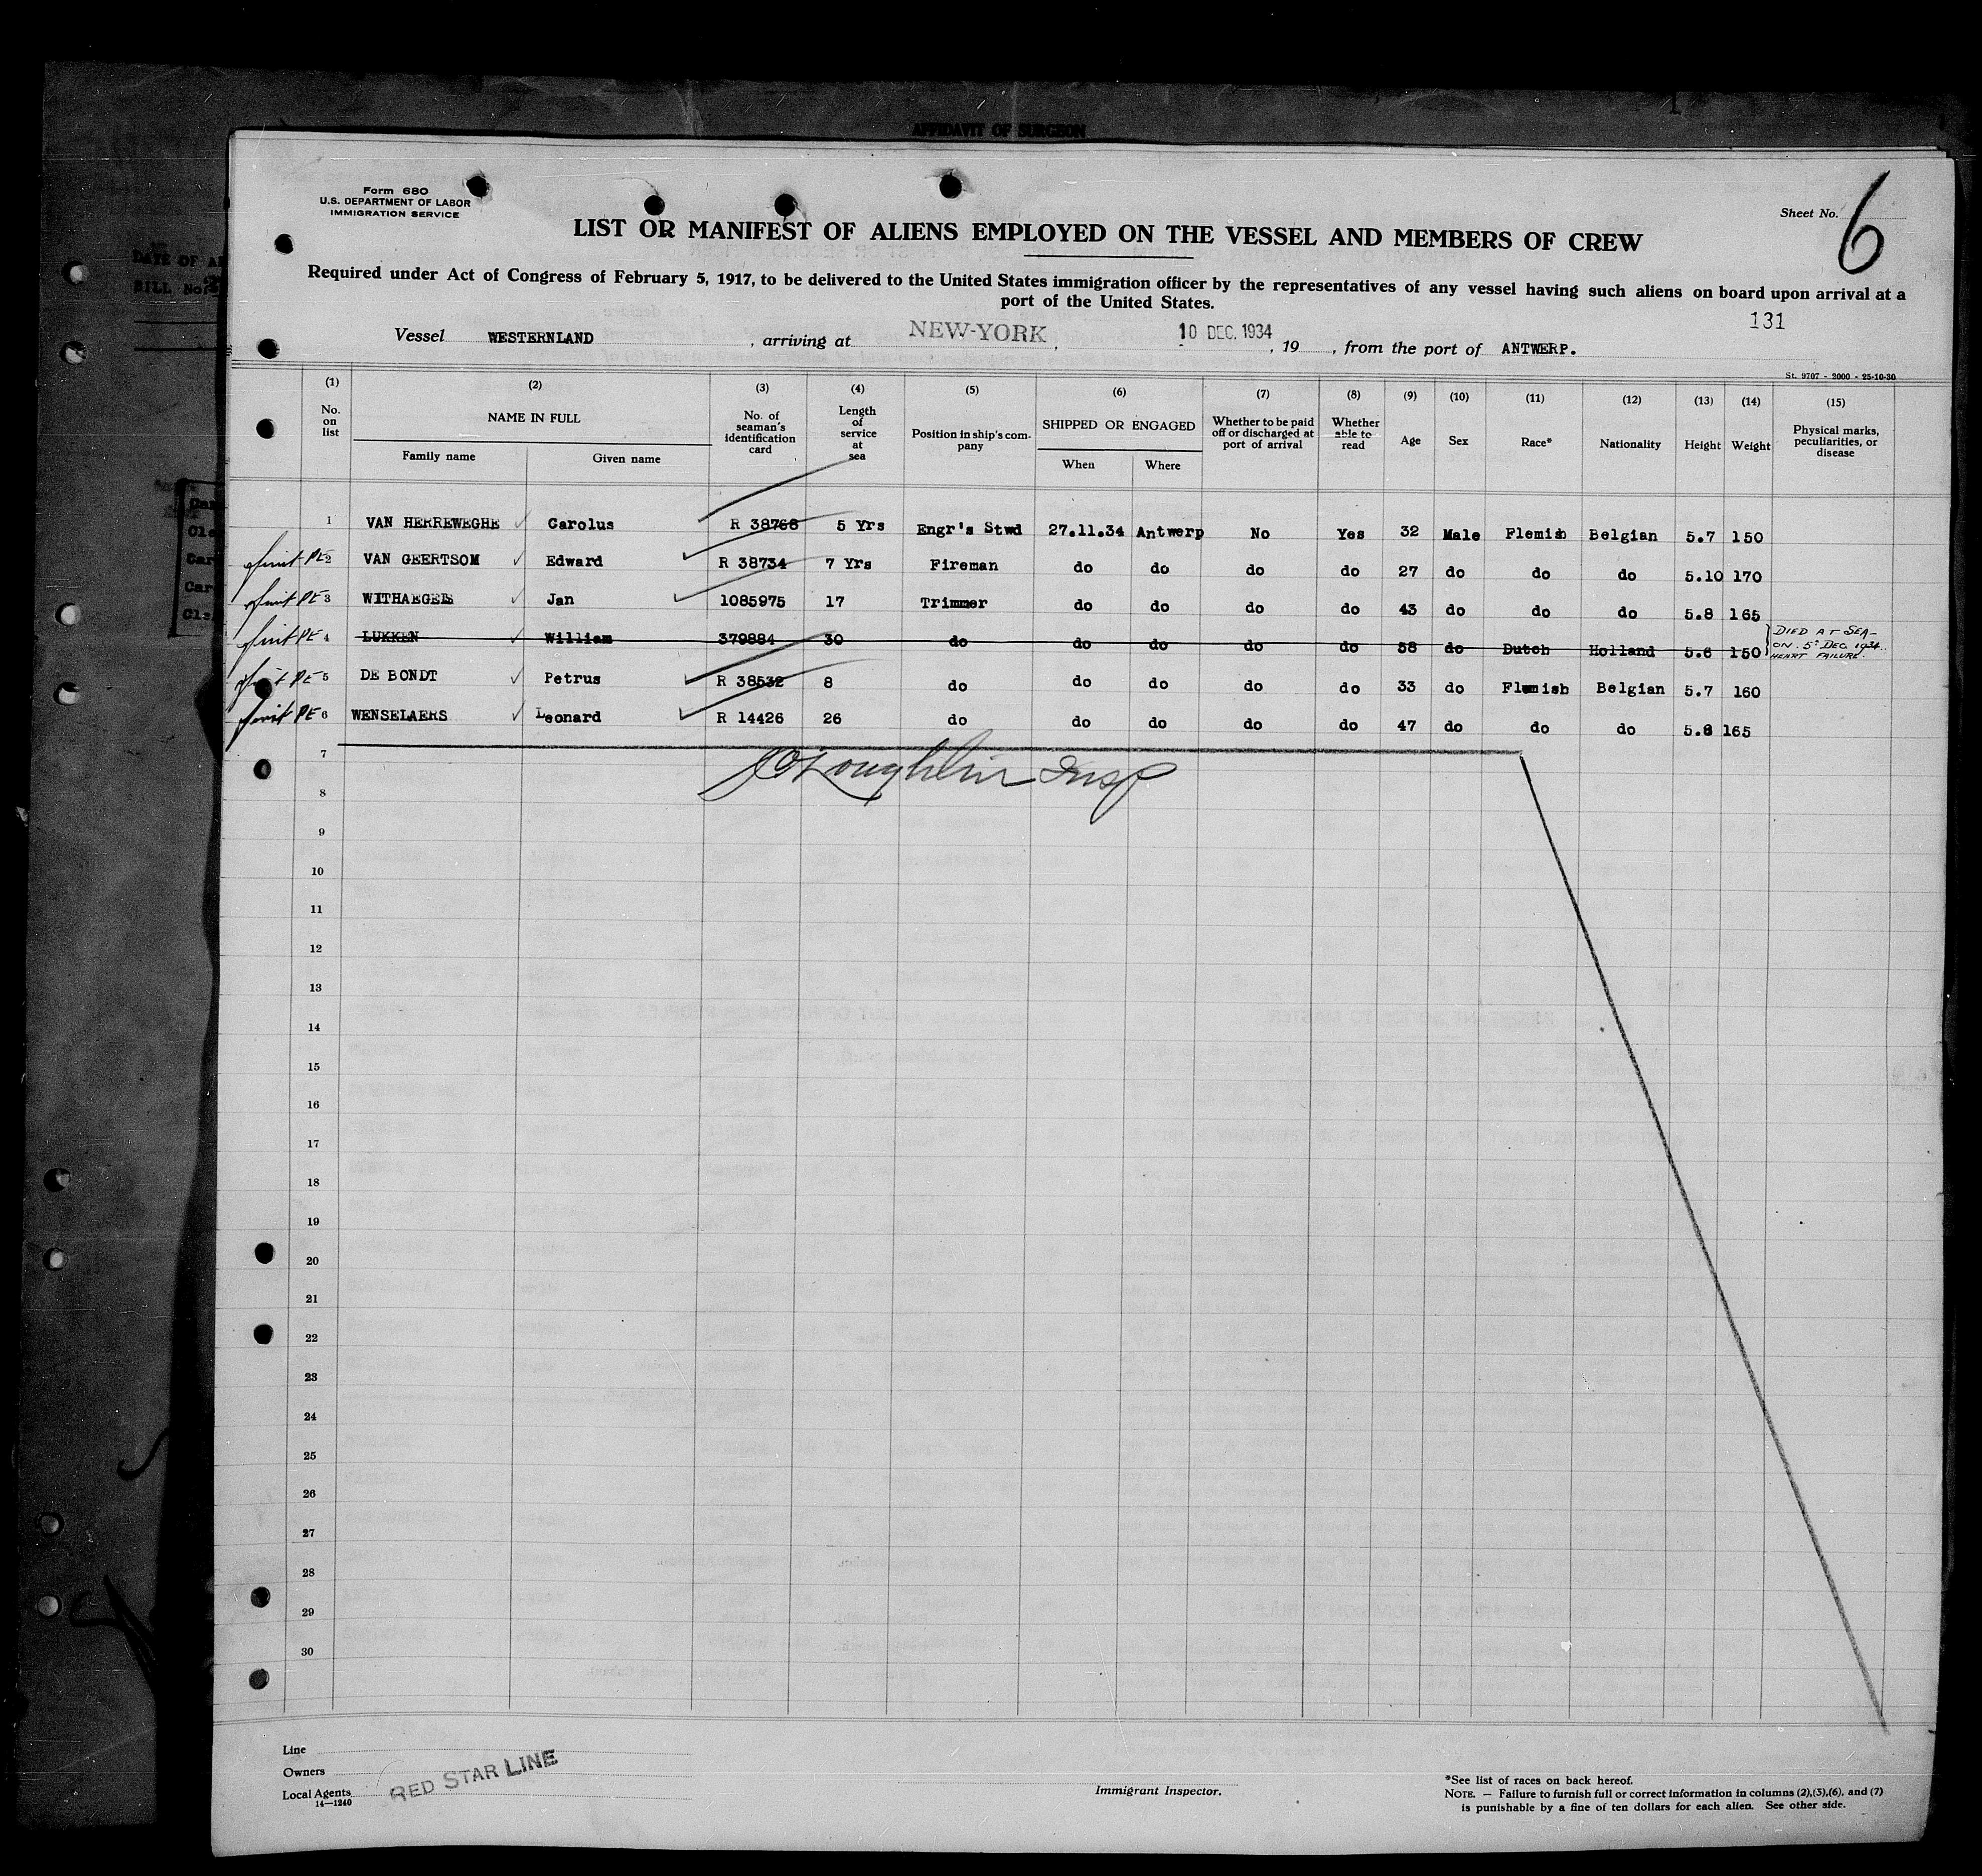 AFFIDAVIT OF SURGEON
Form 680
U.S. DEPARTMENT OF LABOR
IMMIGRATION SERVICE
Sheet No. 6
LIST OR MANIFEST OF ALIENS EMPLOYED ON THE VESSEL AND MEMBERS OF CREW
Required under Act of Congress of February 5, 1917, to be delivered to the United States immigration officer by the representatives of any vessel having such aliens on board upon arrival at a
port of the United States.
131
Vessel WESTERNLAND, arriving at NEW-YORK, 10 DEC. 1934, 19, from the port of ANTWERP.
St. 9707 - 2000 - 25-10-30
(1) (2) (3) (4) (5) (6) (7) (8) (9) (10) (11) (12) (13) (14) (15)
No. on list NAME IN FULL No. of seaman's identification card Length of service at sea Position in ship's company SHIPPED OR ENGAGED Whether to be paid off or discharged at port of arrival Whether able to read Age Sex Race* Nationality Height Weight Physical marks, peculiarities, or disease
Family name Given name When Where
1 VAN HERREWEGHE Carolus R 38768 5 Yrs Engr's Stwd 27.11.34 Antwerp No Yes 32 Male Flemish Belgian 5.7 150
PE 2 VAN GEERTSOM Edward R 38734 7 Yrs Fireman do do do do 27 do do do 5.10 170
PE 3 WITHAEGELS Jan 1085975 17 Trimmer do do do do 43 do do do 5.8 165
PE 4 LUKKEN William 379884 30 do do do do do 58 do Dutch Holland 5.6 150 DIED AT SEA- ON 5th DEC 1934. HEART FAILURE.
PE 5 DE BONDT Petrus R 38532 8 do do do do do 33 do Flemish Belgian 5.7 160
PE 6 WENSELAERS Leonard R 14426 26 do do do do do 47 do do do 5.8 165
7
J O'Loughlin Insp
8
9
10
11
12
13
14
15
16
17
18
19
20
21
22
23
24
25
26
27
28
29
30
Line
Owners
Local Agents
14-1240
RED STAR LINE
Immigrant Inspector.
*See list of races on back hereof.
NOTE. — Failure to furnish full or correct information in columns (2),(5),(6), and (7)
is punishable by a fine of ten dollars for each alien. See other side.